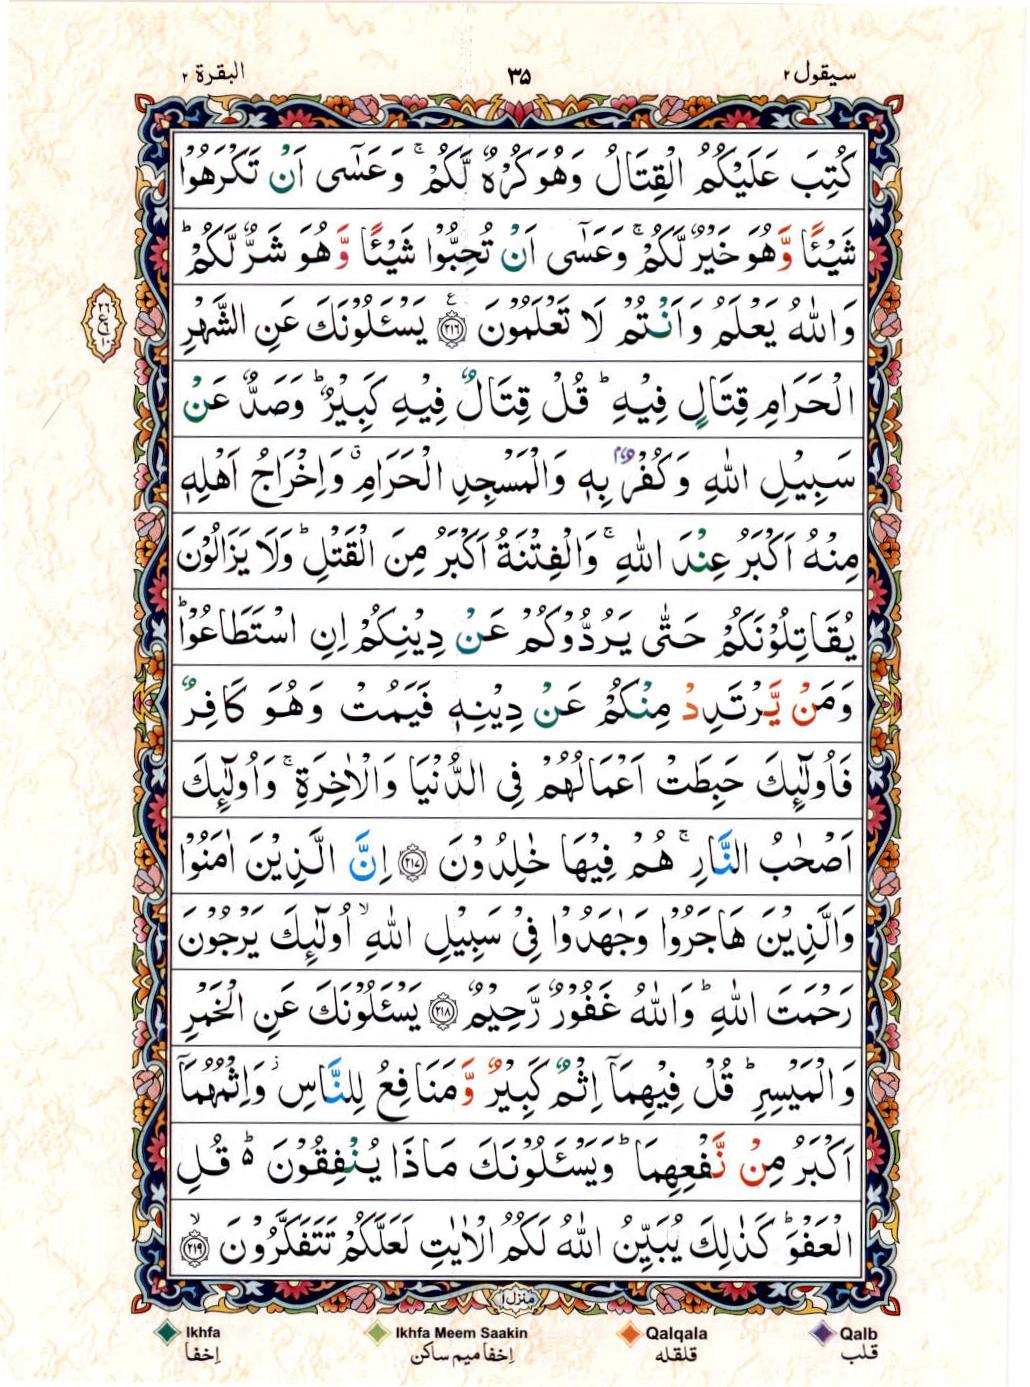 سیقول ۲ ۳۵ البقرة ۲
كُتِبَ عَلَيْكُمُ الْقِتَالُ وَهُوَ كُرْهٌ لَّكُمْ ۚ وَعَسٰٓى اَنْ تَكْرَهُوْا
شَيْـًٔا وَّهُوَ خَيْرٌ لَّكُمْ ۚ وَعَسٰٓى اَنْ تُحِبُّوْا شَيْـًٔا وَّهُوَ شَرٌّ لَّكُمْ ؕ
وَاللّٰهُ يَعْلَمُ وَاَنْتُمْ لَا تَعْلَمُوْنَ ﴿۲۱۶﴾ يَسْـَٔلُوْنَكَ عَنِ الشَّهْرِ
الْحَرَامِ قِتَالٍ فِيْهِ ؕ قُلْ قِتَالٌ فِيْهِ كَبِيْرٌ ؕ وَصَدٌّ عَنْ
سَبِيْلِ اللّٰهِ وَكُفْرٌۢ بِهٖ وَالْمَسْجِدِ الْحَرَامِ ۗ وَاِخْرَاجُ اَهْلِهٖ
مِنْهُ اَكْبَرُ عِنْدَ اللّٰهِ ۚ وَالْفِتْنَةُ اَكْبَرُ مِنَ الْقَتْلِ ؕ وَلَا يَزَالُوْنَ
يُقَاتِلُوْنَكُمْ حَتّٰى يَرُدُّوْكُمْ عَنْ دِيْنِكُمْ اِنِ اسْتَطَاعُوْا ؕ
وَمَنْ يَّرْتَدِدْ مِنْكُمْ عَنْ دِيْنِهٖ فَيَمُتْ وَهُوَ كَافِرٌ
فَاُولٰٓئِكَ حَبِطَتْ اَعْمَالُهُمْ فِى الدُّنْيَا وَالْاٰخِرَةِ ۚ وَاُولٰٓئِكَ
اَصْحٰبُ النَّارِ ۚ هُمْ فِيْهَا خٰلِدُوْنَ ﴿۲۱۷﴾ اِنَّ الَّذِيْنَ اٰمَنُوْا
وَالَّذِيْنَ هَاجَرُوْا وَجٰهَدُوْا فِىْ سَبِيْلِ اللّٰهِ ۙ اُولٰٓئِكَ يَرْجُوْنَ
رَحْمَتَ اللّٰهِ ؕ وَاللّٰهُ غَفُوْرٌ رَّحِيْمٌ ﴿۲۱۸﴾ يَسْـَٔلُوْنَكَ عَنِ الْخَمْرِ
وَالْمَيْسِرِ ؕ قُلْ فِيْهِمَآ اِثْمٌ كَبِيْرٌ وَّمَنَافِعُ لِلنَّاسِ ۫ وَاِثْمُهُمَآ
اَكْبَرُ مِنْ نَّفْعِهِمَا ؕ وَيَسْـَٔلُوْنَكَ مَاذَا يُنْفِقُوْنَ ۬ؕ قُلِ
الْعَفْوَ ؕ كَذٰلِكَ يُبَيِّنُ اللّٰهُ لَكُمُ الْاٰيٰتِ لَعَلَّكُمْ تَتَفَكَّرُوْنَ ۙ ﴿۲۱۹﴾
منزل ۱
Ikhfa Ikhfa Meem Saakin Qalqala Qalb
إخفا إخفا میم ساکن قلقله قلب